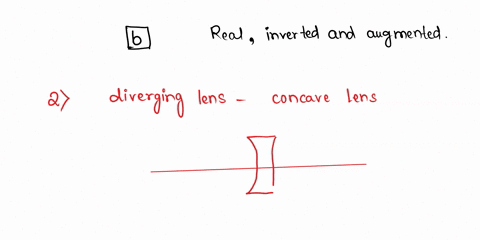 b Real, inverted and augmented.
2> diverging lens - concave lens